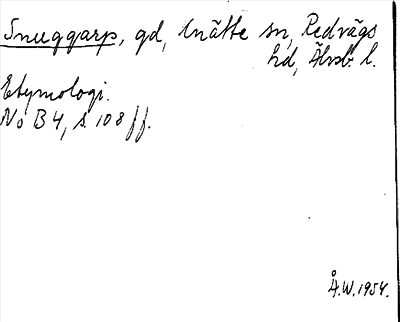 Snuggarp, gd, Knätte sn, Redvägs
hd, Älvsb. l.
Etymologi.
No B 4, s. 108 ff.
Å.W. 1954.